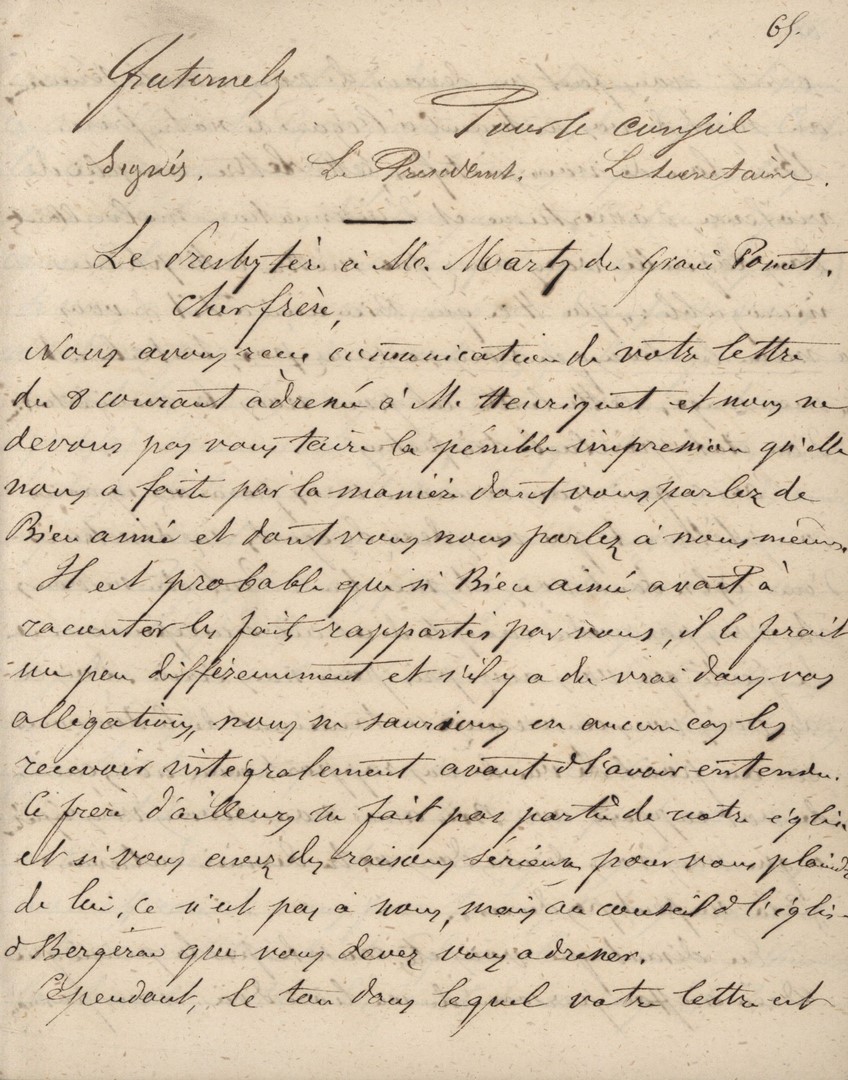 65.
fraternels
Pour le conseil
Signés. Le Président. Le secretaire.
Le Presbytère à Mr. Marty du Grand Pomet.
Cher frère,
Nous avons recu comunication de votre lettre
du 8 courant adressée à M. Henriquet et nous ne
devons pas vous taire la pénible impression qu'elle
nous a faite par la manière dont vous parlez de
Bien aimé et dont vous nous parlez à nous mêmes.
Il est probable que si Bien aimé avait à
raconter les faits rapportés par vous, il le ferait
un peu différemment et s'il y a du vrai dans vos
alligations, nous ne saurions en aucun cas les
recevoir intégralement avant d l'avoir entendu.
Ce frère d'ailleurs ne fait pas partie de notre église
et si vous avez des raisons sérieuses pour vous plaindre
de lui, ce n'est pas à nous, mais au conseil d l'église
d Bergerac que vous devez vous adresser.
Cépendant, le ton dans lequel votre lettre est